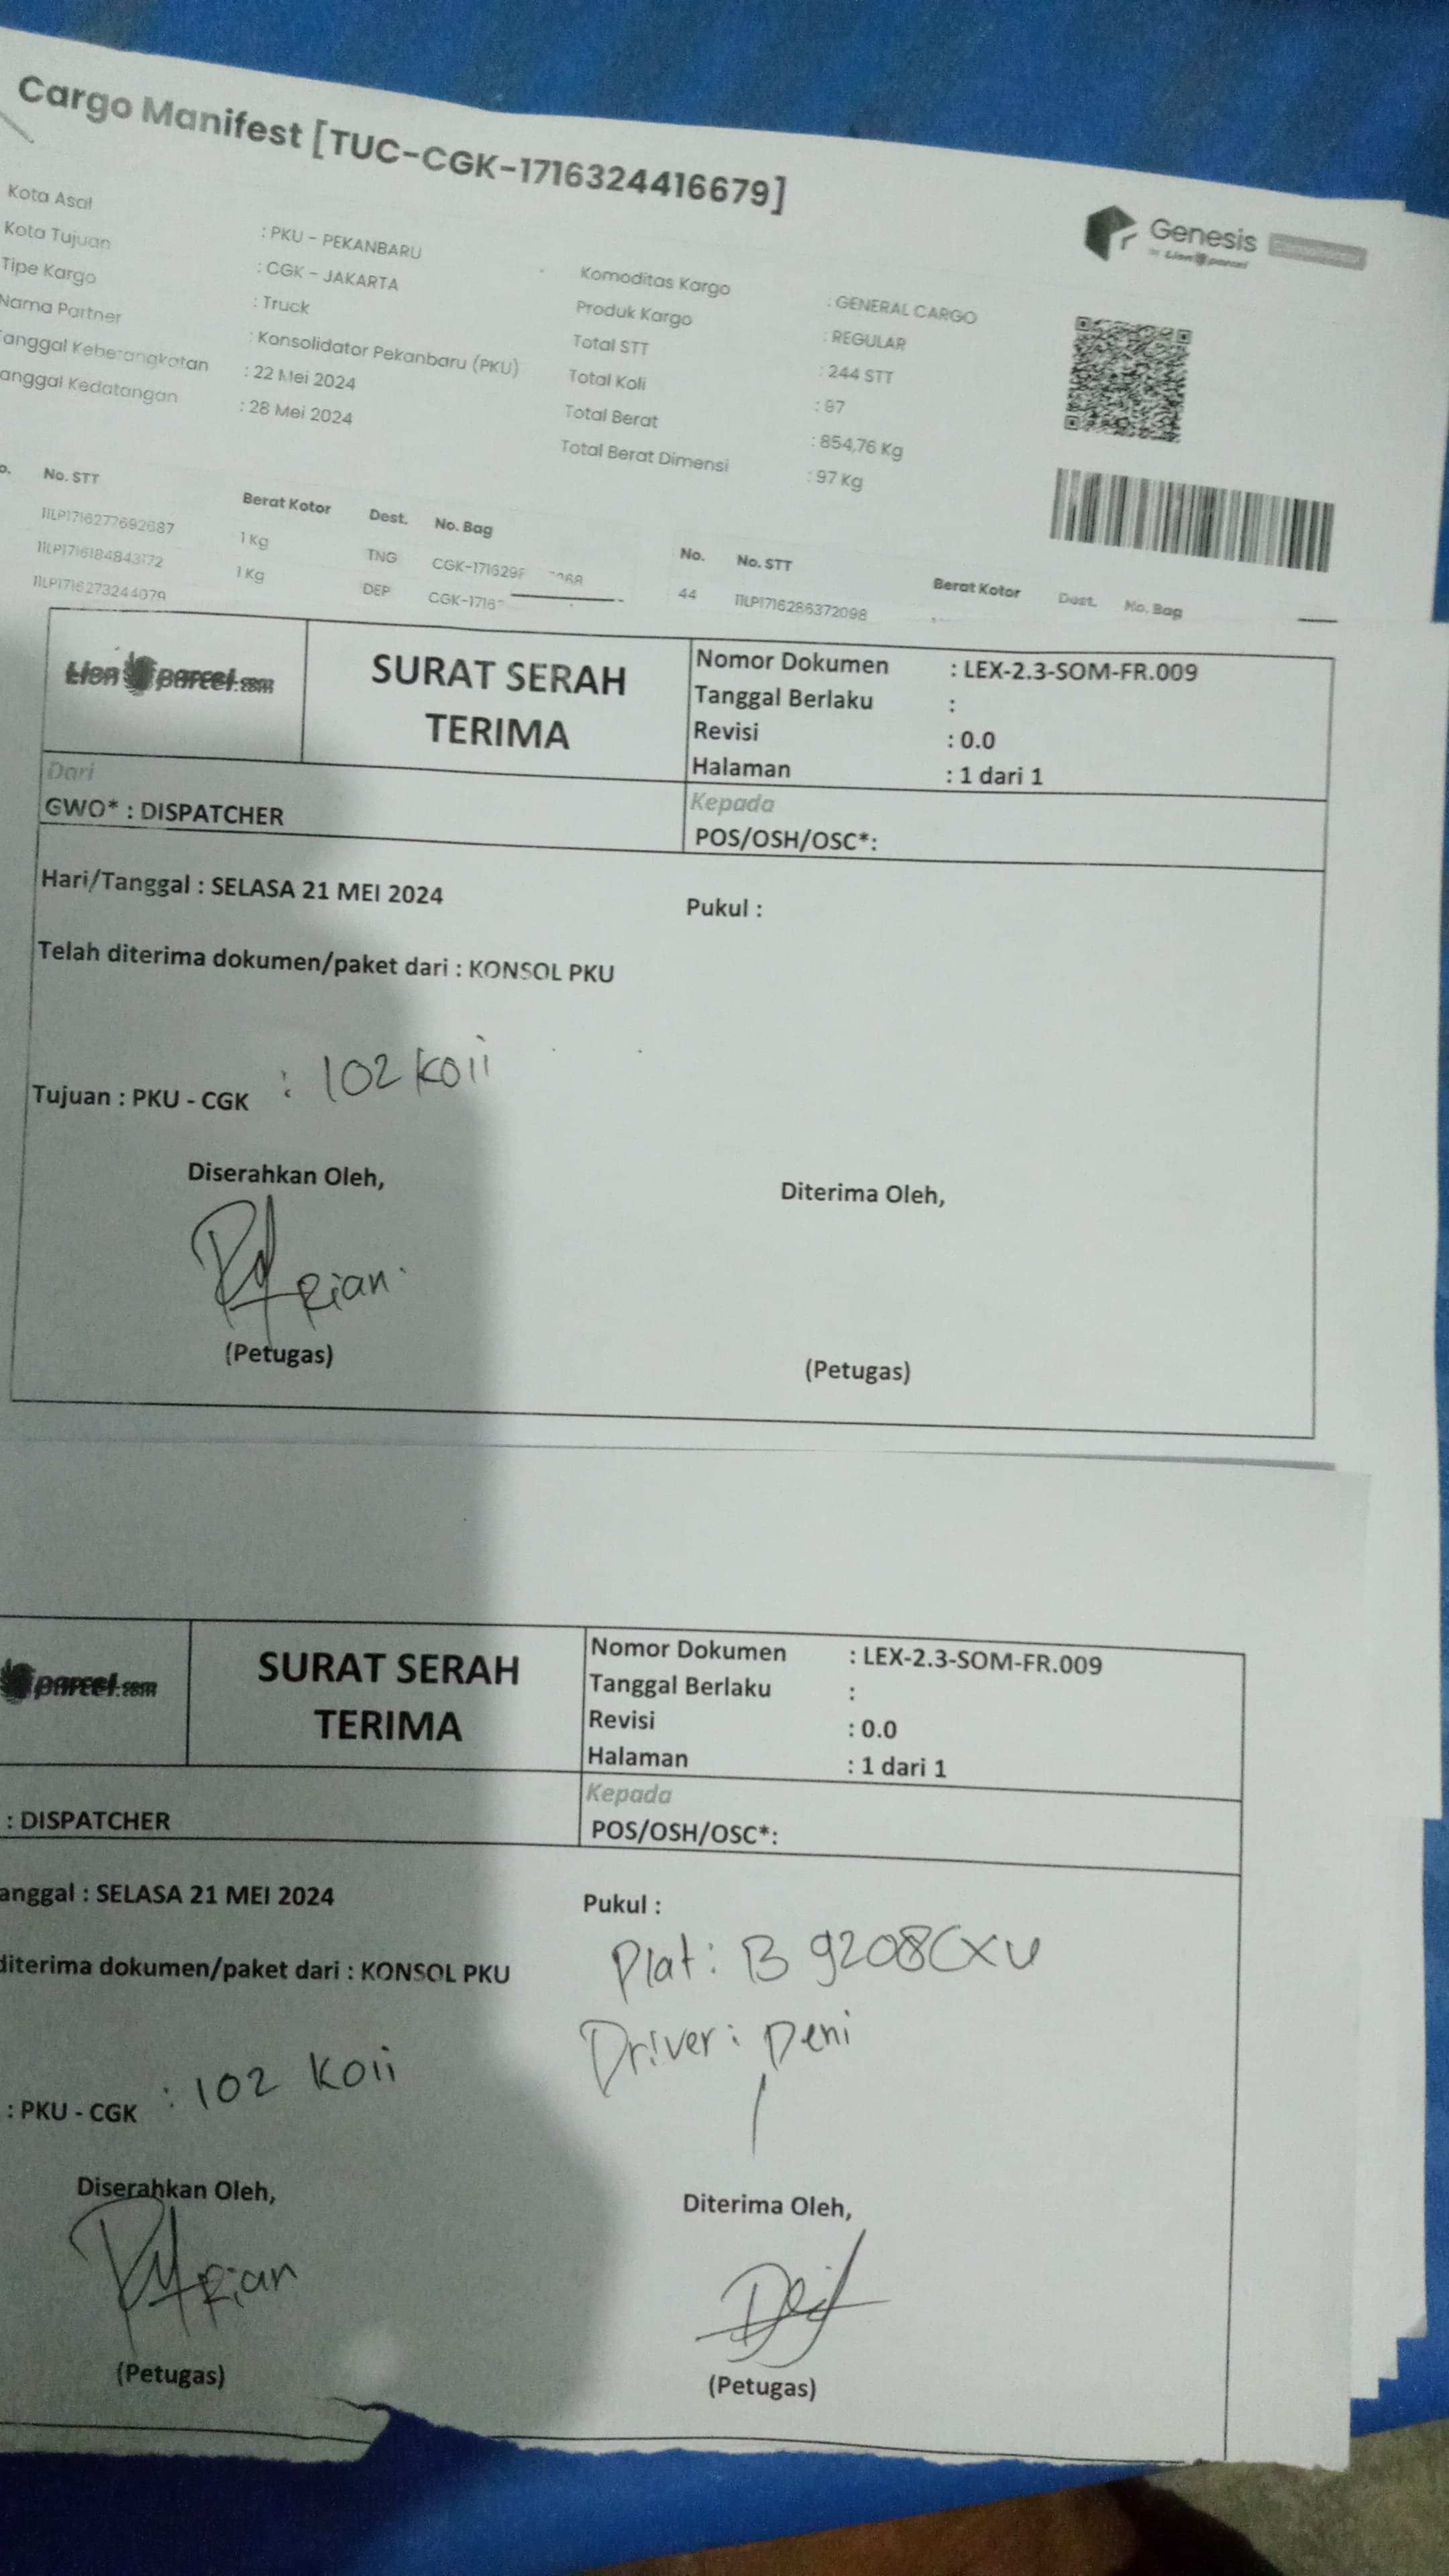 Cargo Manifest [TUC-CGK-1716324416679]
Genesis
by Lion parcel
Kota Asal : PKU - PEKANBARU
Kota Tujuan : CGK - JAKARTA
Tipe Kargo : Truck
Nama Partner : Konsolidator Pekanbaru (PKU)
anggal Keberangkatan : 22 Mei 2024
anggal Kedatangan : 28 Mei 2024
Komoditas Kargo : GENERAL CARGO
Produk Kargo : REGULAR
Total STT : 244 STT
Total Koli : 97
Total Berat : 854,76 Kg
Total Berat Dimensi : 97 Kg
o. No. STT Berat Kotor Dest. No. Bag
11LP1716277692687 1 Kg TNG
11LP1716184843172 1 Kg DEP
11LP1716273244079
No. No. STT Berat Kotor Dest. No. Bag
44 11LP1716286372098
Lion parcel.com
SURAT SERAH
TERIMA
Nomor Dokumen : LEX-2.3-SOM-FR.009
Tanggal Berlaku :
Revisi : 0.0
Halaman : 1 dari 1
Dari
GWO* : DISPATCHER
Kepada
POS/OSH/OSC*:
Hari/Tanggal : SELASA 21 MEI 2024
Pukul :
Telah diterima dokumen/paket dari : KONSOL PKU
Tujuan : PKU - CGK : 102 Koli
Diserahkan Oleh,
Diterima Oleh,
Rian
(Petugas)
(Petugas)
parcel.com
SURAT SERAH
TERIMA
Nomor Dokumen : LEX-2.3-SOM-FR.009
Tanggal Berlaku :
Revisi : 0.0
Halaman : 1 dari 1
: DISPATCHER
Kepada
POS/OSH/OSC*:
anggal : SELASA 21 MEI 2024
Pukul :
Plat : B 9208CXU
diterima dokumen/paket dari : KONSOL PKU
Driver : Deni
: PKU - CGK : 102 Koli
Diserahkan Oleh,
Diterima Oleh,
Rian
(Petugas)
(Petugas)